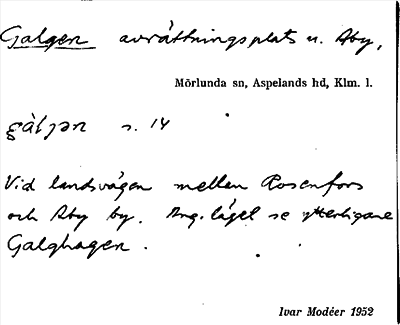 Galgen avrättningsplats u. Åby,
Mörlunda sn, Aspelands hd, Klm. l.
gàljən s. 14
Vid landsvägen mellan Rosenfors
och Åby by. Ang. läget se ytterligare
Galghagen.
Ivar Modéer 1952